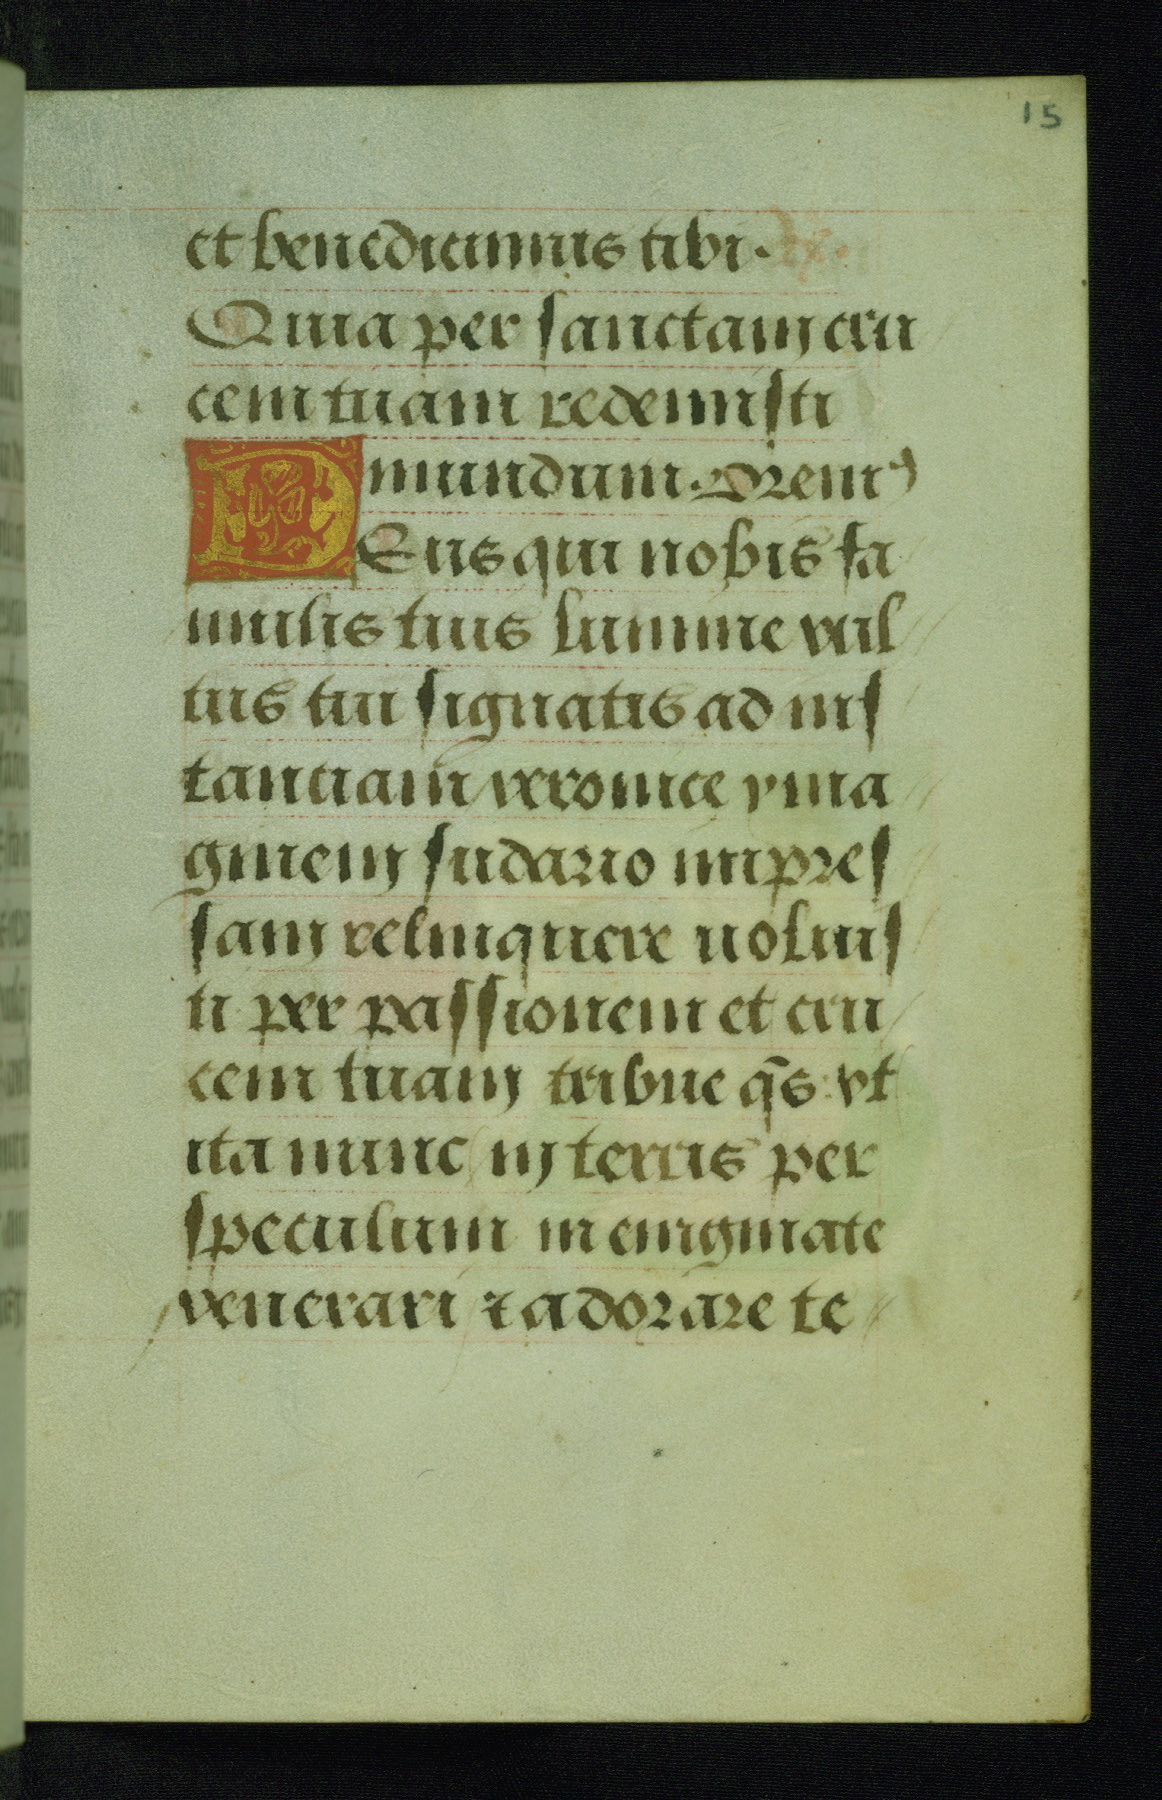 15
et benedicimus tibi.
Quia per sanctam cru
cem tuam redemisti
mundum. Orem⁹
DEus qui nobis fa
mulis tuis lumine vul
tus tui signatis ad ins
tantiam veronice yma
ginem sudario impres
sam relinquere uoluis
ti per passionem et cru
cem tuam tribue q̄s vt
ita nunc in terris per
speculum in enigmate
venerari ⁊ adorare te